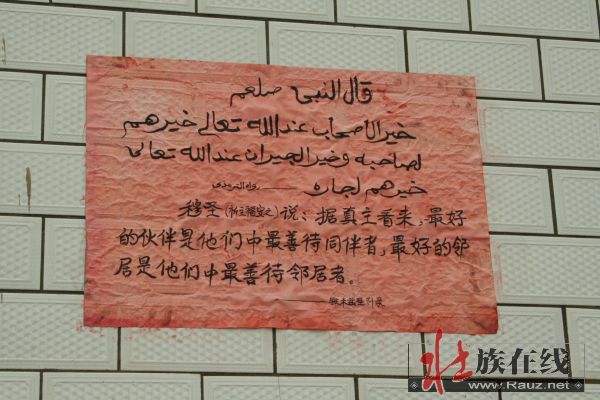 قال النبي صلعم
خير الاصحاب عند الله تعالى خيرهم
لصاحبه وخير الجيران عند الله تعالى
خيرهم لجاره —— رواه الترمذي
穆圣(祈主福安之)说：据真主看来，最好
的伙伴是他们中最善待同伴者，最好的邻
居是他们中最善待邻居者。
壮族在线
www.Rauz.net